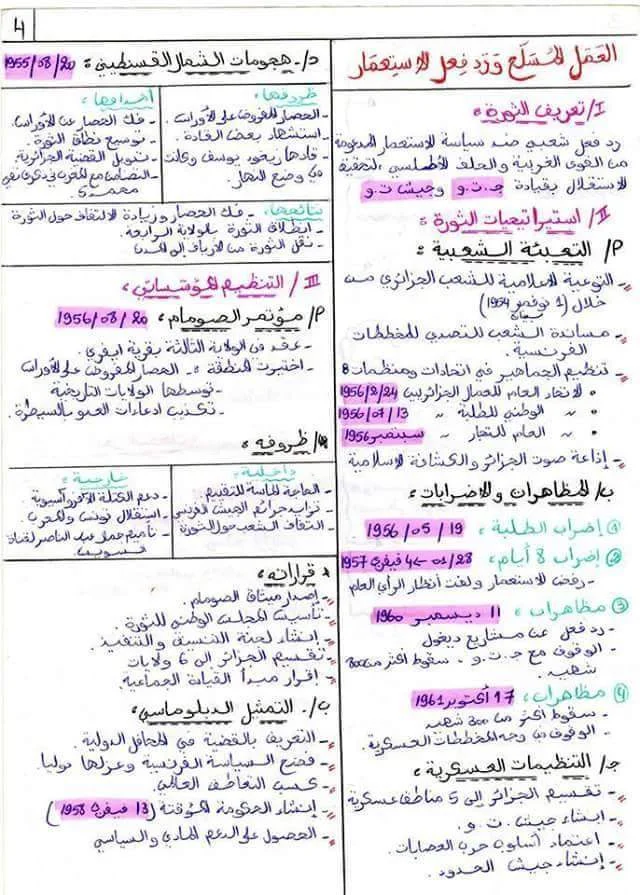 4
العمل المسلح ورد فعل الاستعمار
I/ تعريف الثورة:
رد فعل شعبي ضد سياسة الاستعمار المدعومة
من القوى الغربية والحلف الأطلسي لتحقيق
الاستقلال بقيادة ج.ت.و وجيش ت.و
II/ استراتيجيات الثورة:
P/ التعبئة الشعبية:
- التوعية الإعلامية للشعب الجزائري من
خلال (1 نوفمبر 1954)
بيان
- مساندة الشعب للتصدي للمخططات
الفرنسية.
- تنظيم الجماهير في اتحادات ومنظمات:
• الاتحاد العام للعمال الجزائريين 1956/2/24
• " الوطني للطلبة " 1956/07/13
• " العام للتجار " سبتمبر 1956
- إذاعة صوت الجزائر والكشافة الإسلامية
ب/ المظاهرات والإضرابات:
① إضراب الطلبة: 1956/05/19
② إضراب 8 أيام: 01/28 ← 4 فيفري 1957
- رفض الاستعمار ولفت أنظار الرأي العام
③ مظاهرات: 11 ديسمبر 1960
- رد فعل عن مشاريع ديغول
- الوقوف مع ج.ت.و. سقوط أكثر من 800
شهيد.
④ مظاهرات: 17 أكتوبر 1961
- سقوط أكثر من 300 شهيد
- الوقوف في وجه المخططات العسكرية.
ج/ التنظيمات العسكرية:
- تقسيم الجزائر إلى 5 مناطق عسكرية
- إنشاء جيش ت.و.
- اعتماد أسلوب حرب العصابات.
- إنشاء جيش الحدود.
د/- هجومات الشمال القسنطيني: 1955/08/20
ظروفها:
- الحصار المفروض على الأوراس.
- استشهاد بعض القادة.
- قادها زيغود يوسف وكانت
في وضح النهار.
أهدافها:
- فك الحصار عن الأوراس.
- توسيع نطاق الثورة.
- تدويل القضية الجزائرية.
- التضامن مع المغرب في ذكرى نفي
محمد 5
نتائجها: - فك الحصار وزيادة الالتفاف حول الثورة
- انطلاق الثورة بالولاية الرابعة.
- نقل الثورة من الأرياف إلى المدن
III/ التنظيم المؤسساتي:
P/ مؤتمر الصومام: 1956/08/20
- عقد في الولاية الثالثة بقرية ايفري.
- اختيرت المنطقة: - الحصار المفروض على الأوراس
- توسطها الولايات التاريخية
- تكذيب ادعاءات العدو بالسيطرة.
* ظروفه:
داخلية:
- الحاجة الماسة للتقييم
- تزايد جرائم الجيش الفرنسي
- التفاف الشعب حول الثورة
خارجية:
- دعم الكتلة الأفروآسيوية
- استقلال تونس والمغرب.
- تأميم جمال عبد الناصر لقناة
السويس.
* قراراته:
- إصدار ميثاق الصومام.
- تأسيس المجلس الوطني للثورة.
- إنشاء لجنة التنسيق والتنفيذ.
- تقسيم الجزائر إلى 6 ولايات
- إقرار مبدأ القيادة الجماعية.
ب/. التمثيل الدبلوماسي:
- التعريف بالقضية في المحافل الدولية.
- فضح السياسة الفرنسية وعزلها دوليا.
- كسب التعاطف العالمي.
- إنشاء الحكومة المؤقتة (13 فيفري 1958)
- الحصول على الدعم المادي والسياسي